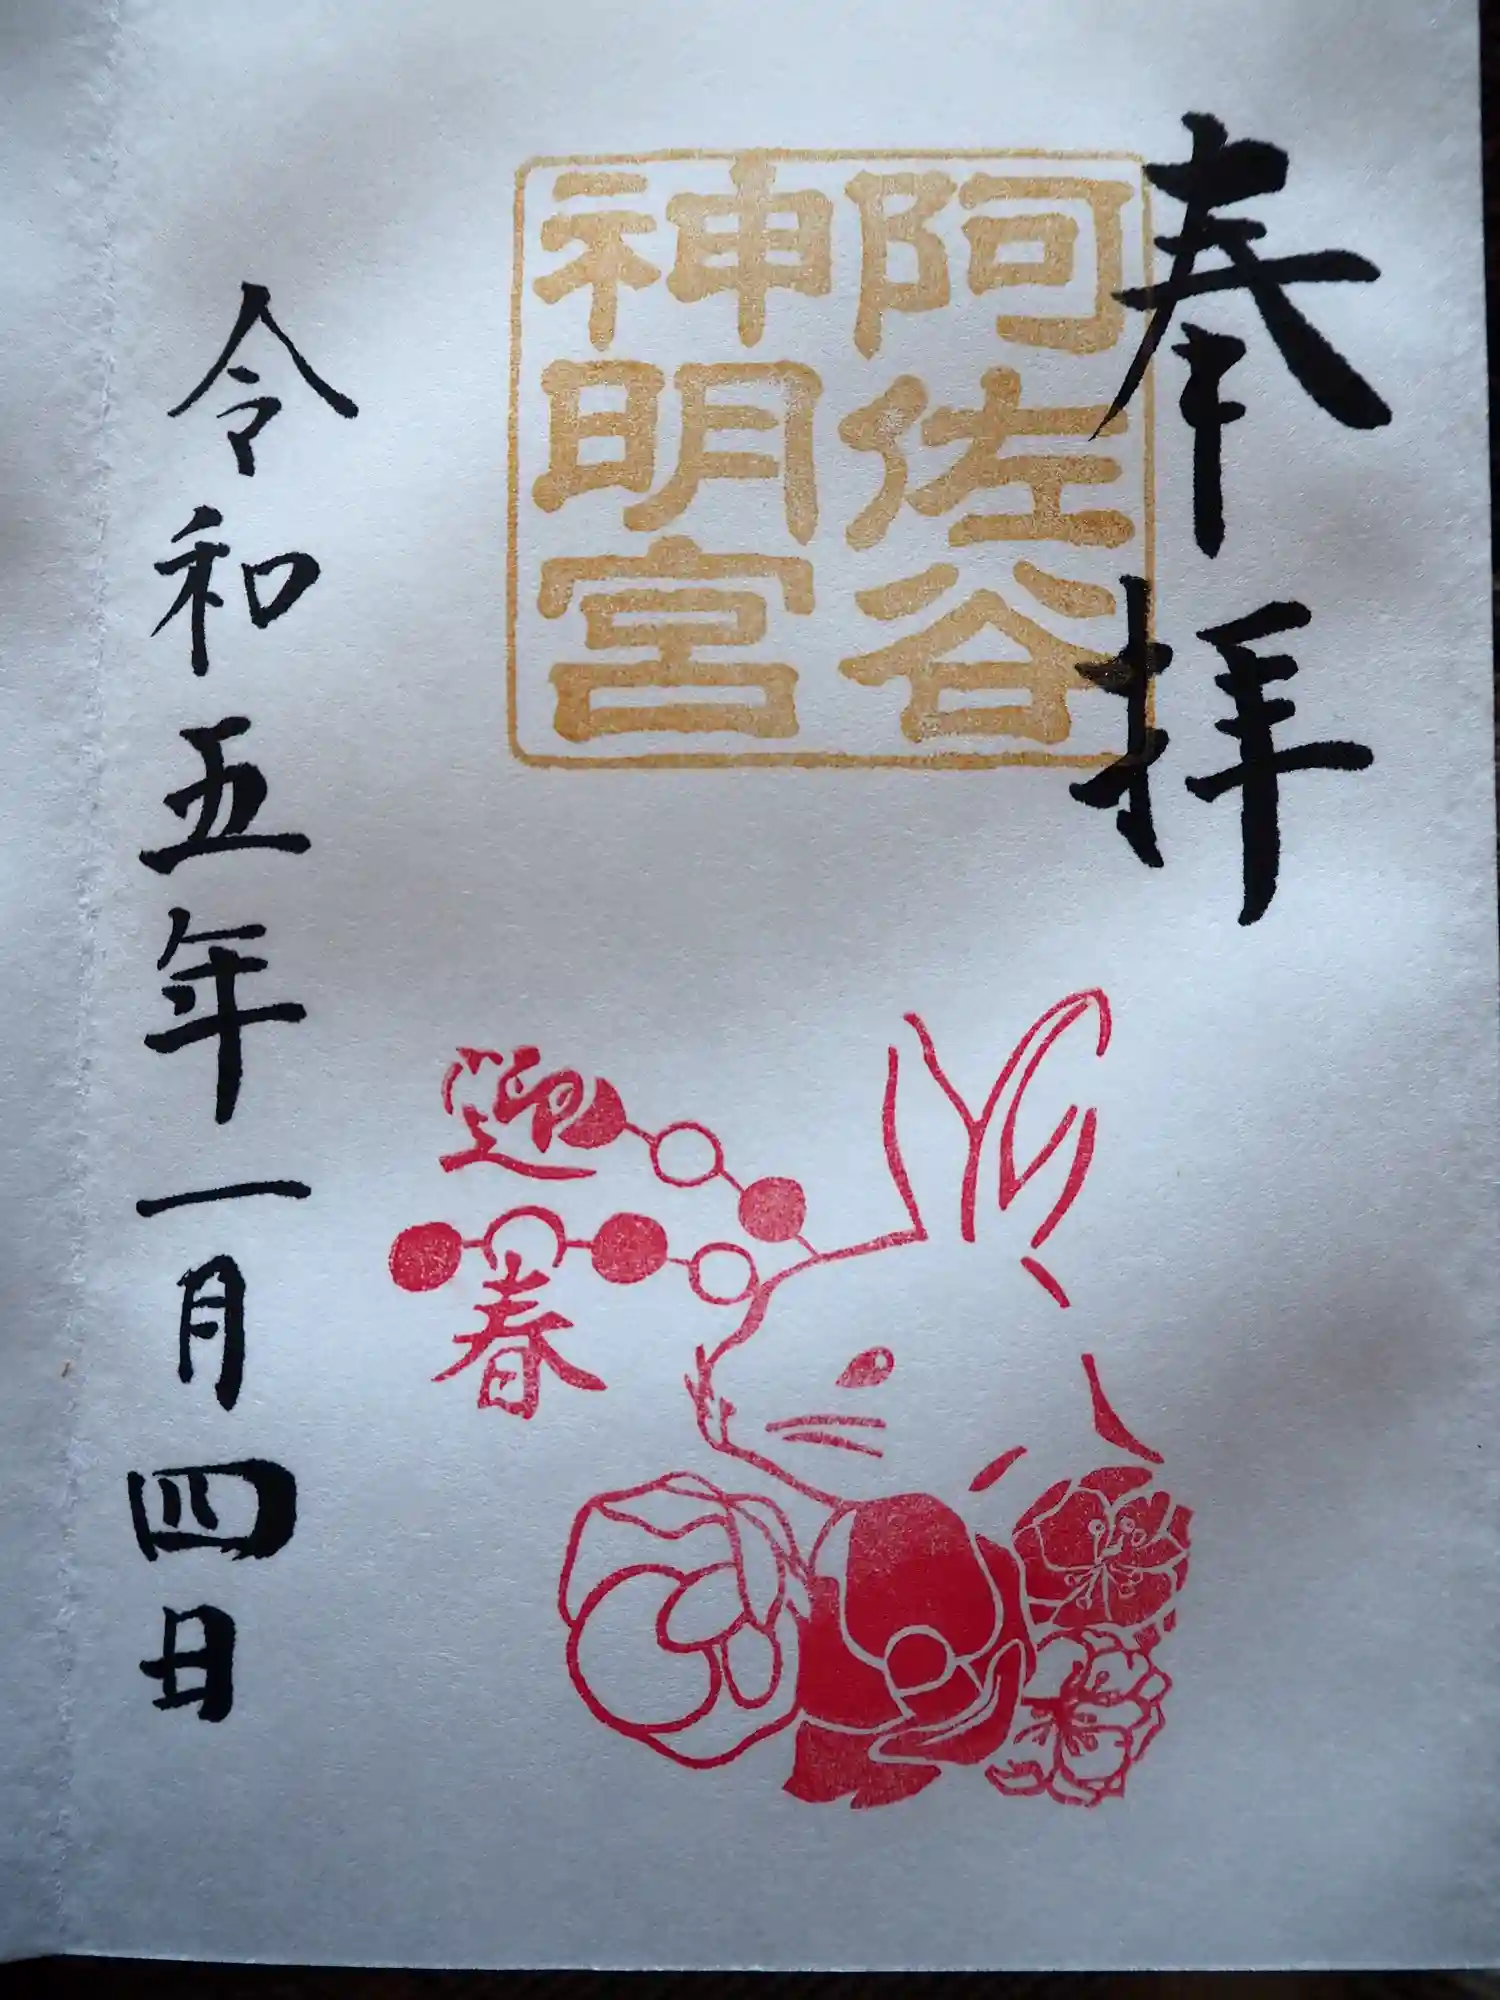 奉拝
阿佐谷
神明宮
迎春
令和五年一月四日